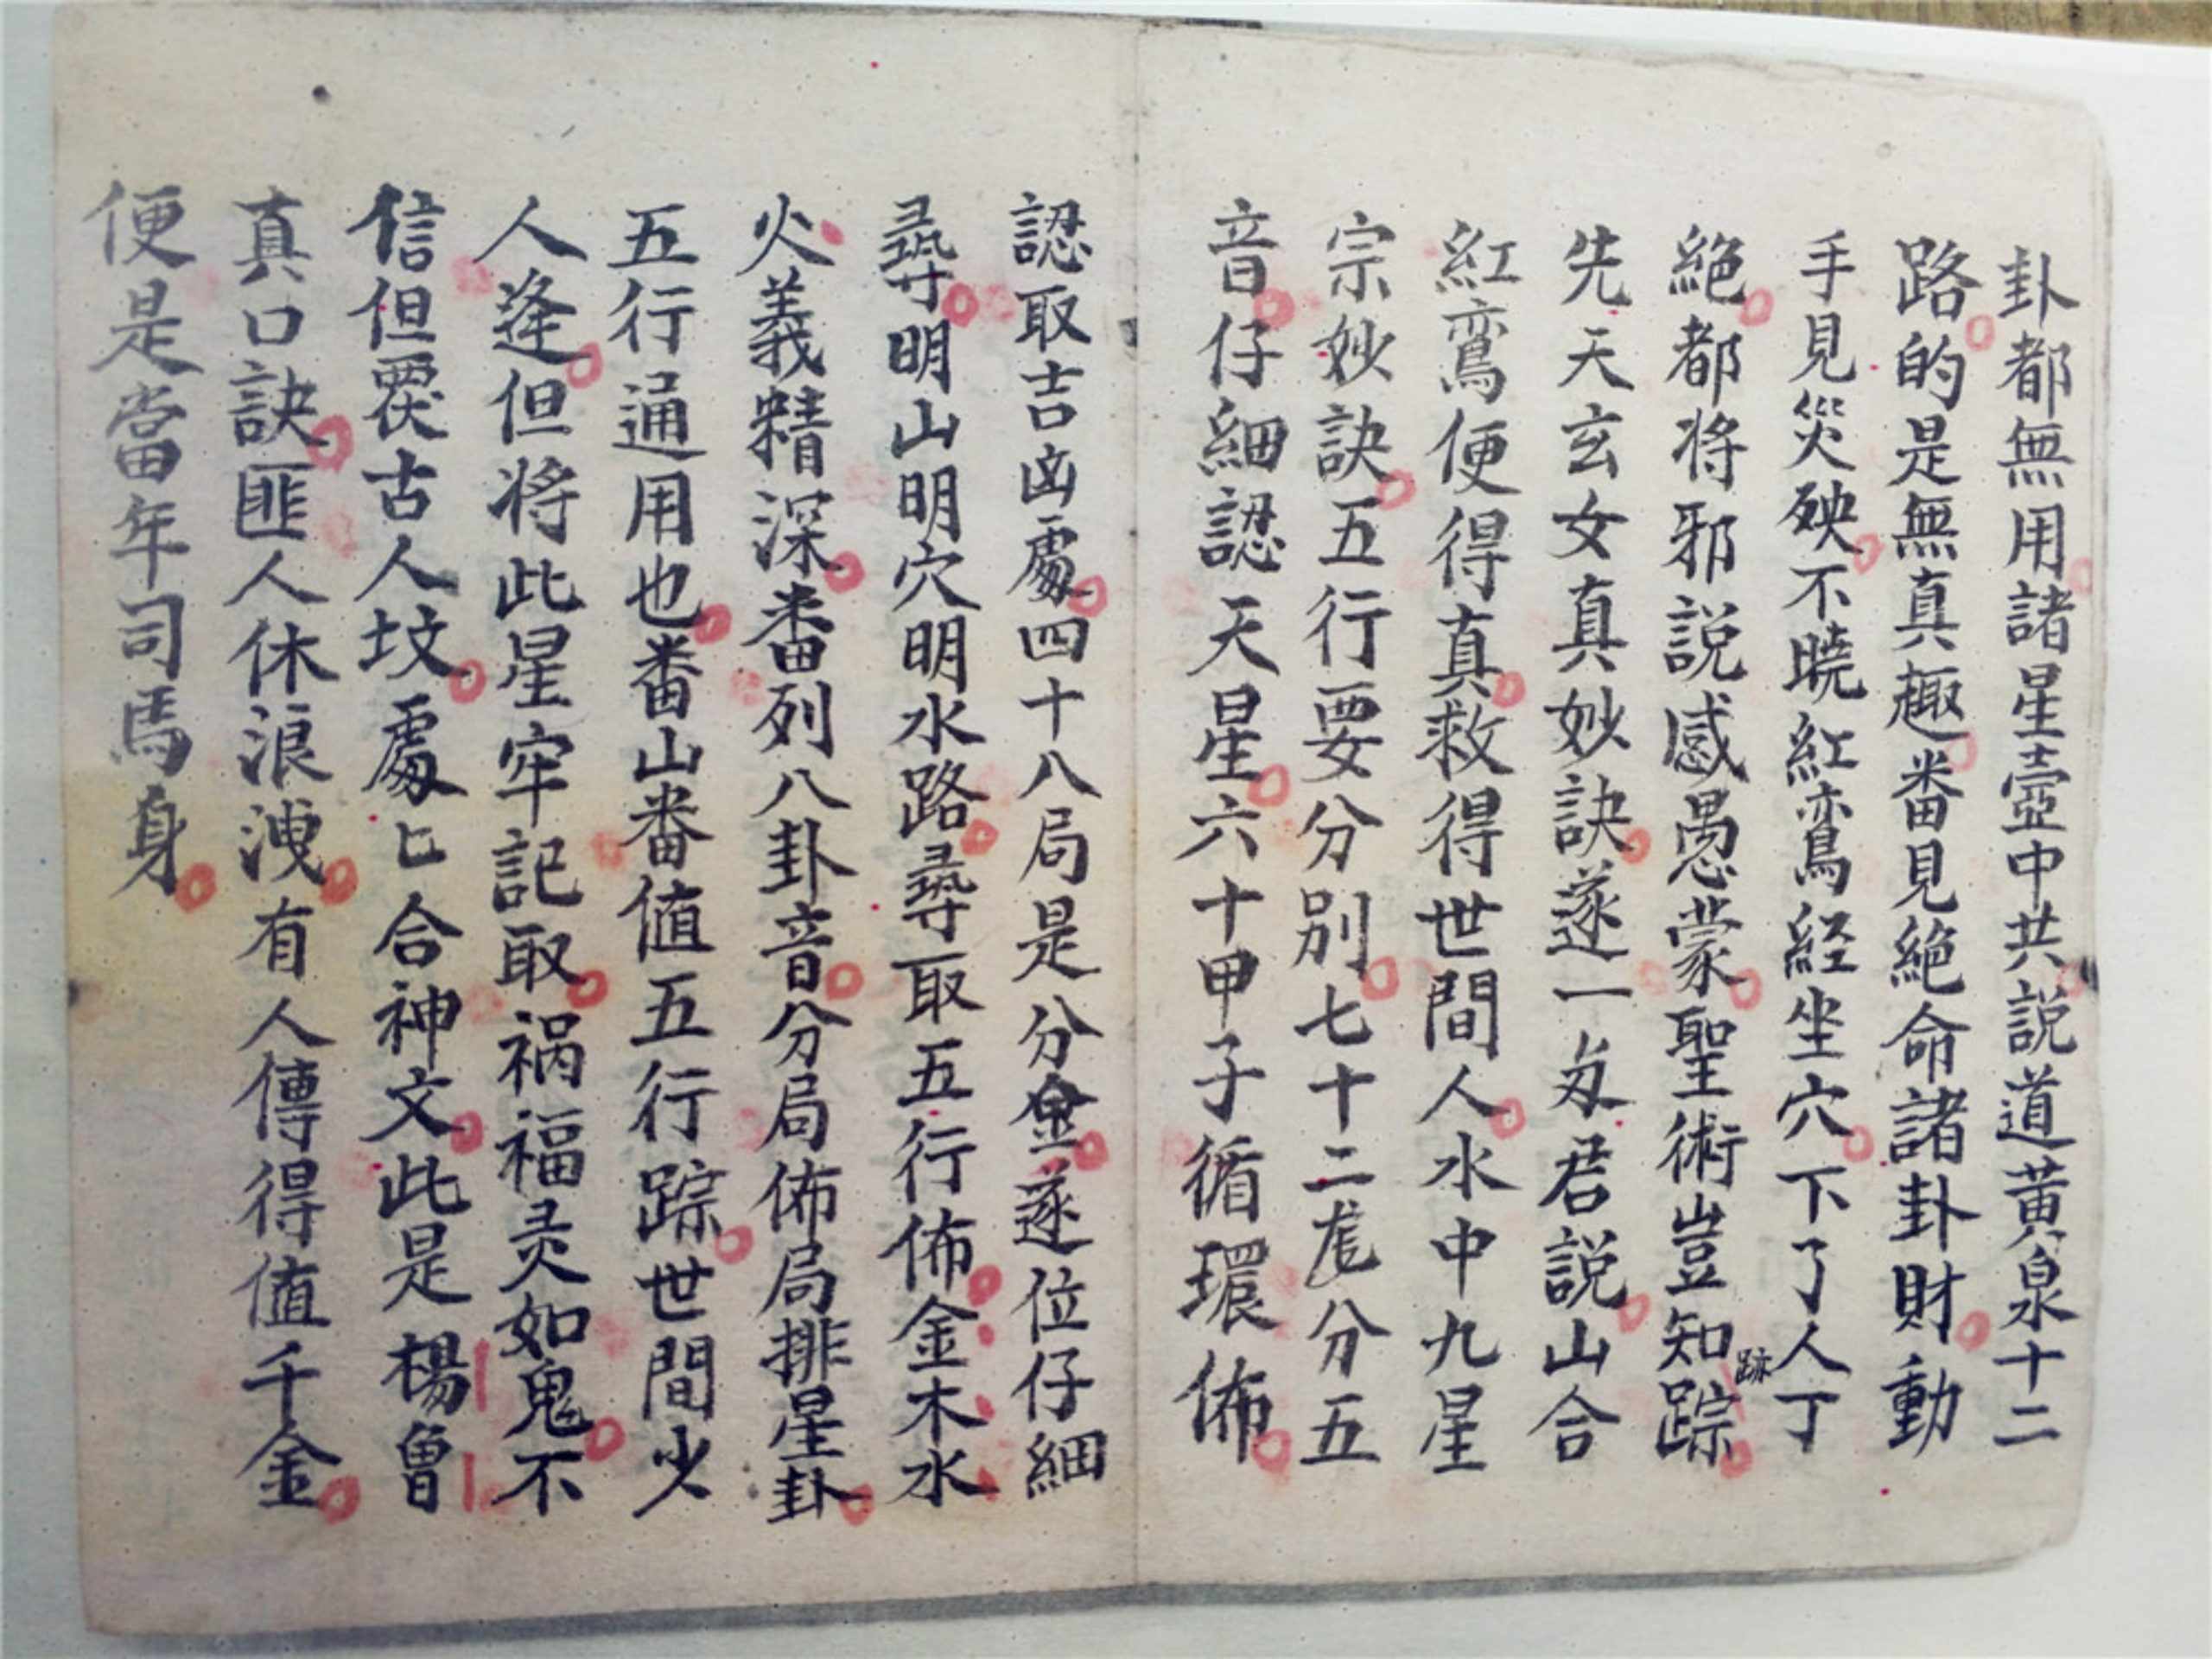 卦都無用諸星壺中共説道黃泉十二
路的是無真趣番見絶命諸卦財動
手見災殃不曉紅鸞経坐穴下了人丁
絶都将邪説惑愚蒙聖術豈知踪
跡
先天玄女真妙訣遂一為君説山合
紅鸞便得真救得世間人水中九星
宗妙訣五行要分别七十二龙分五
音仔細認天星六十甲子循環佈
認取吉凶處四十八局是分金遂位仔細
尋明山明穴明水路尋取五行佈金木水
火義精深番列八卦音分局佈局排星卦
五行通用也番山番值五行踪世間少
人逢但将此星牢記取祸福灵如鬼不
信但覆古人坟處匕合神文此是楊曾
真口訣匪人休浪洩有人傳得值千金
便是當年司馬身